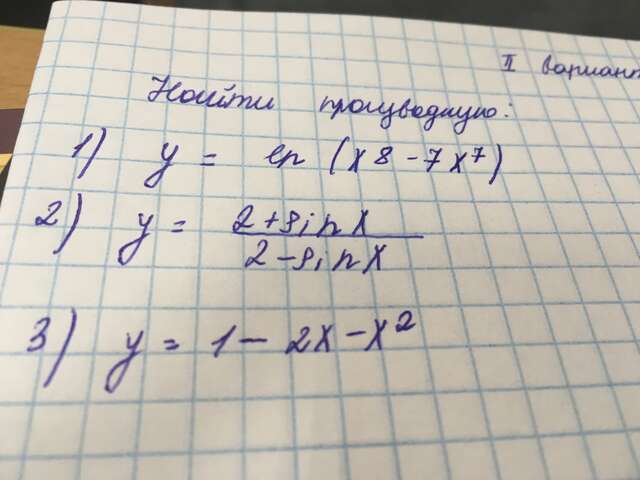 II вариан
Найти производную:
1) y = ln (x8 - 7x7)
2) y = 2+sinx
2-sinx
3) y = 1 - 2x - x2